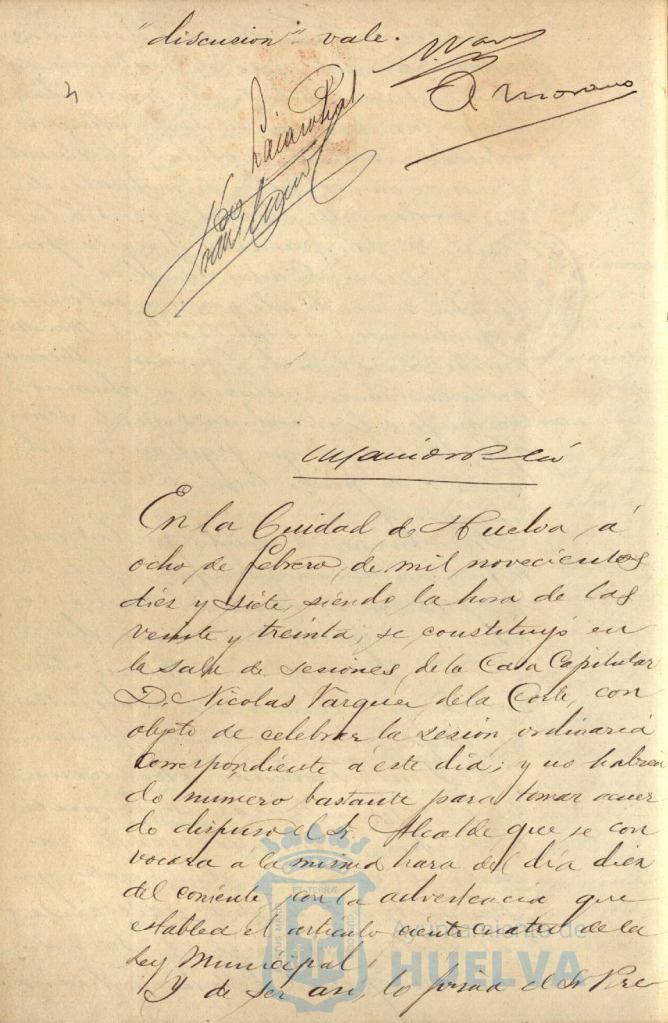 "discusion" vale.
A Moreno
En la Ciudad de Huelva á
ocho de febrero, de mil novecientos
diez y siete, siendo la hora de las
veinte y treinta, se constituyó en
la sala de sesiones de la Casa Capitular
D. Nicolas Vazquez de la Corte, con
objeto de celebrar la sesión ordinaria
correspondiente á este dia; y no habien
do numero bastante para tomar acuer
do dispuso el Sr. Alcalde que se con
vocara a la misma hora del día diez
del corriente, con la advertencia que
establece el articulo ciento cuatro de la
Ley Municipal
Y de ser asi, lo firma el Sr Pre
Ayuntamiento de
HUELVA